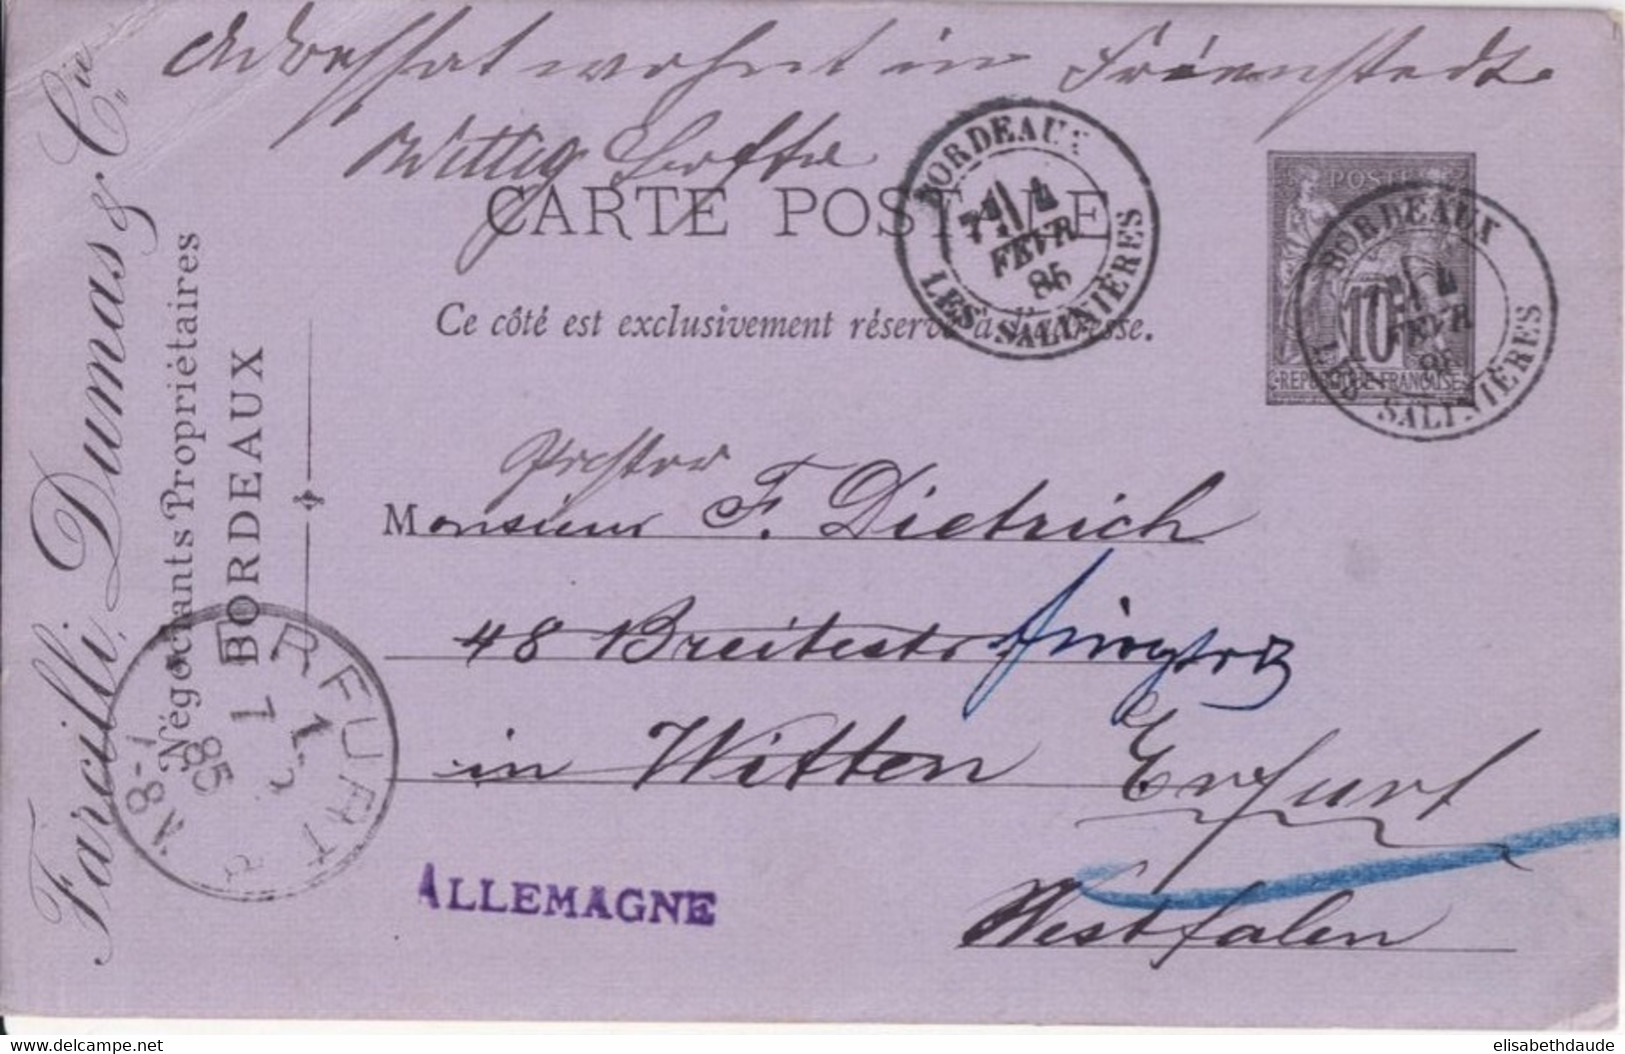 Adressat wohnt in
Wittig
CARTE POSTALE
Ce côté est exclusivement réservé à l'adresse.
BORDEAUX
4
FEVR
85
LES SALINIÈRES
POSTES
10
REPUBLIQUE FRANÇAISE
BORDEAUX
4
FEVR
85
LES SALINIÈRES
Farcilli, Dumas & Cie
Négociants Propriétaires
BORDEAUX
Monsieur F. Dietrich
48 Breitestr
in Witten Erfurt
Westfalen
ALLEMAGNE
ERFURT
7
2
85
8-9N
delcampe.net
elisabethdaude